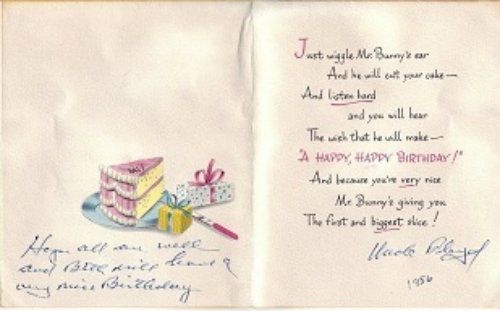 Hope all are well
and Bill will have a
very nice Birthday
Just wiggle Mr. Bunny's ear
And he will cut your cake—
And listen hard
and you will hear
The wish that he will make—
"A HAPPY, HAPPY BIRTHDAY!"
And because you're very nice
Mr. Bunny's giving you
The first and biggest slice!
Uncle
1956